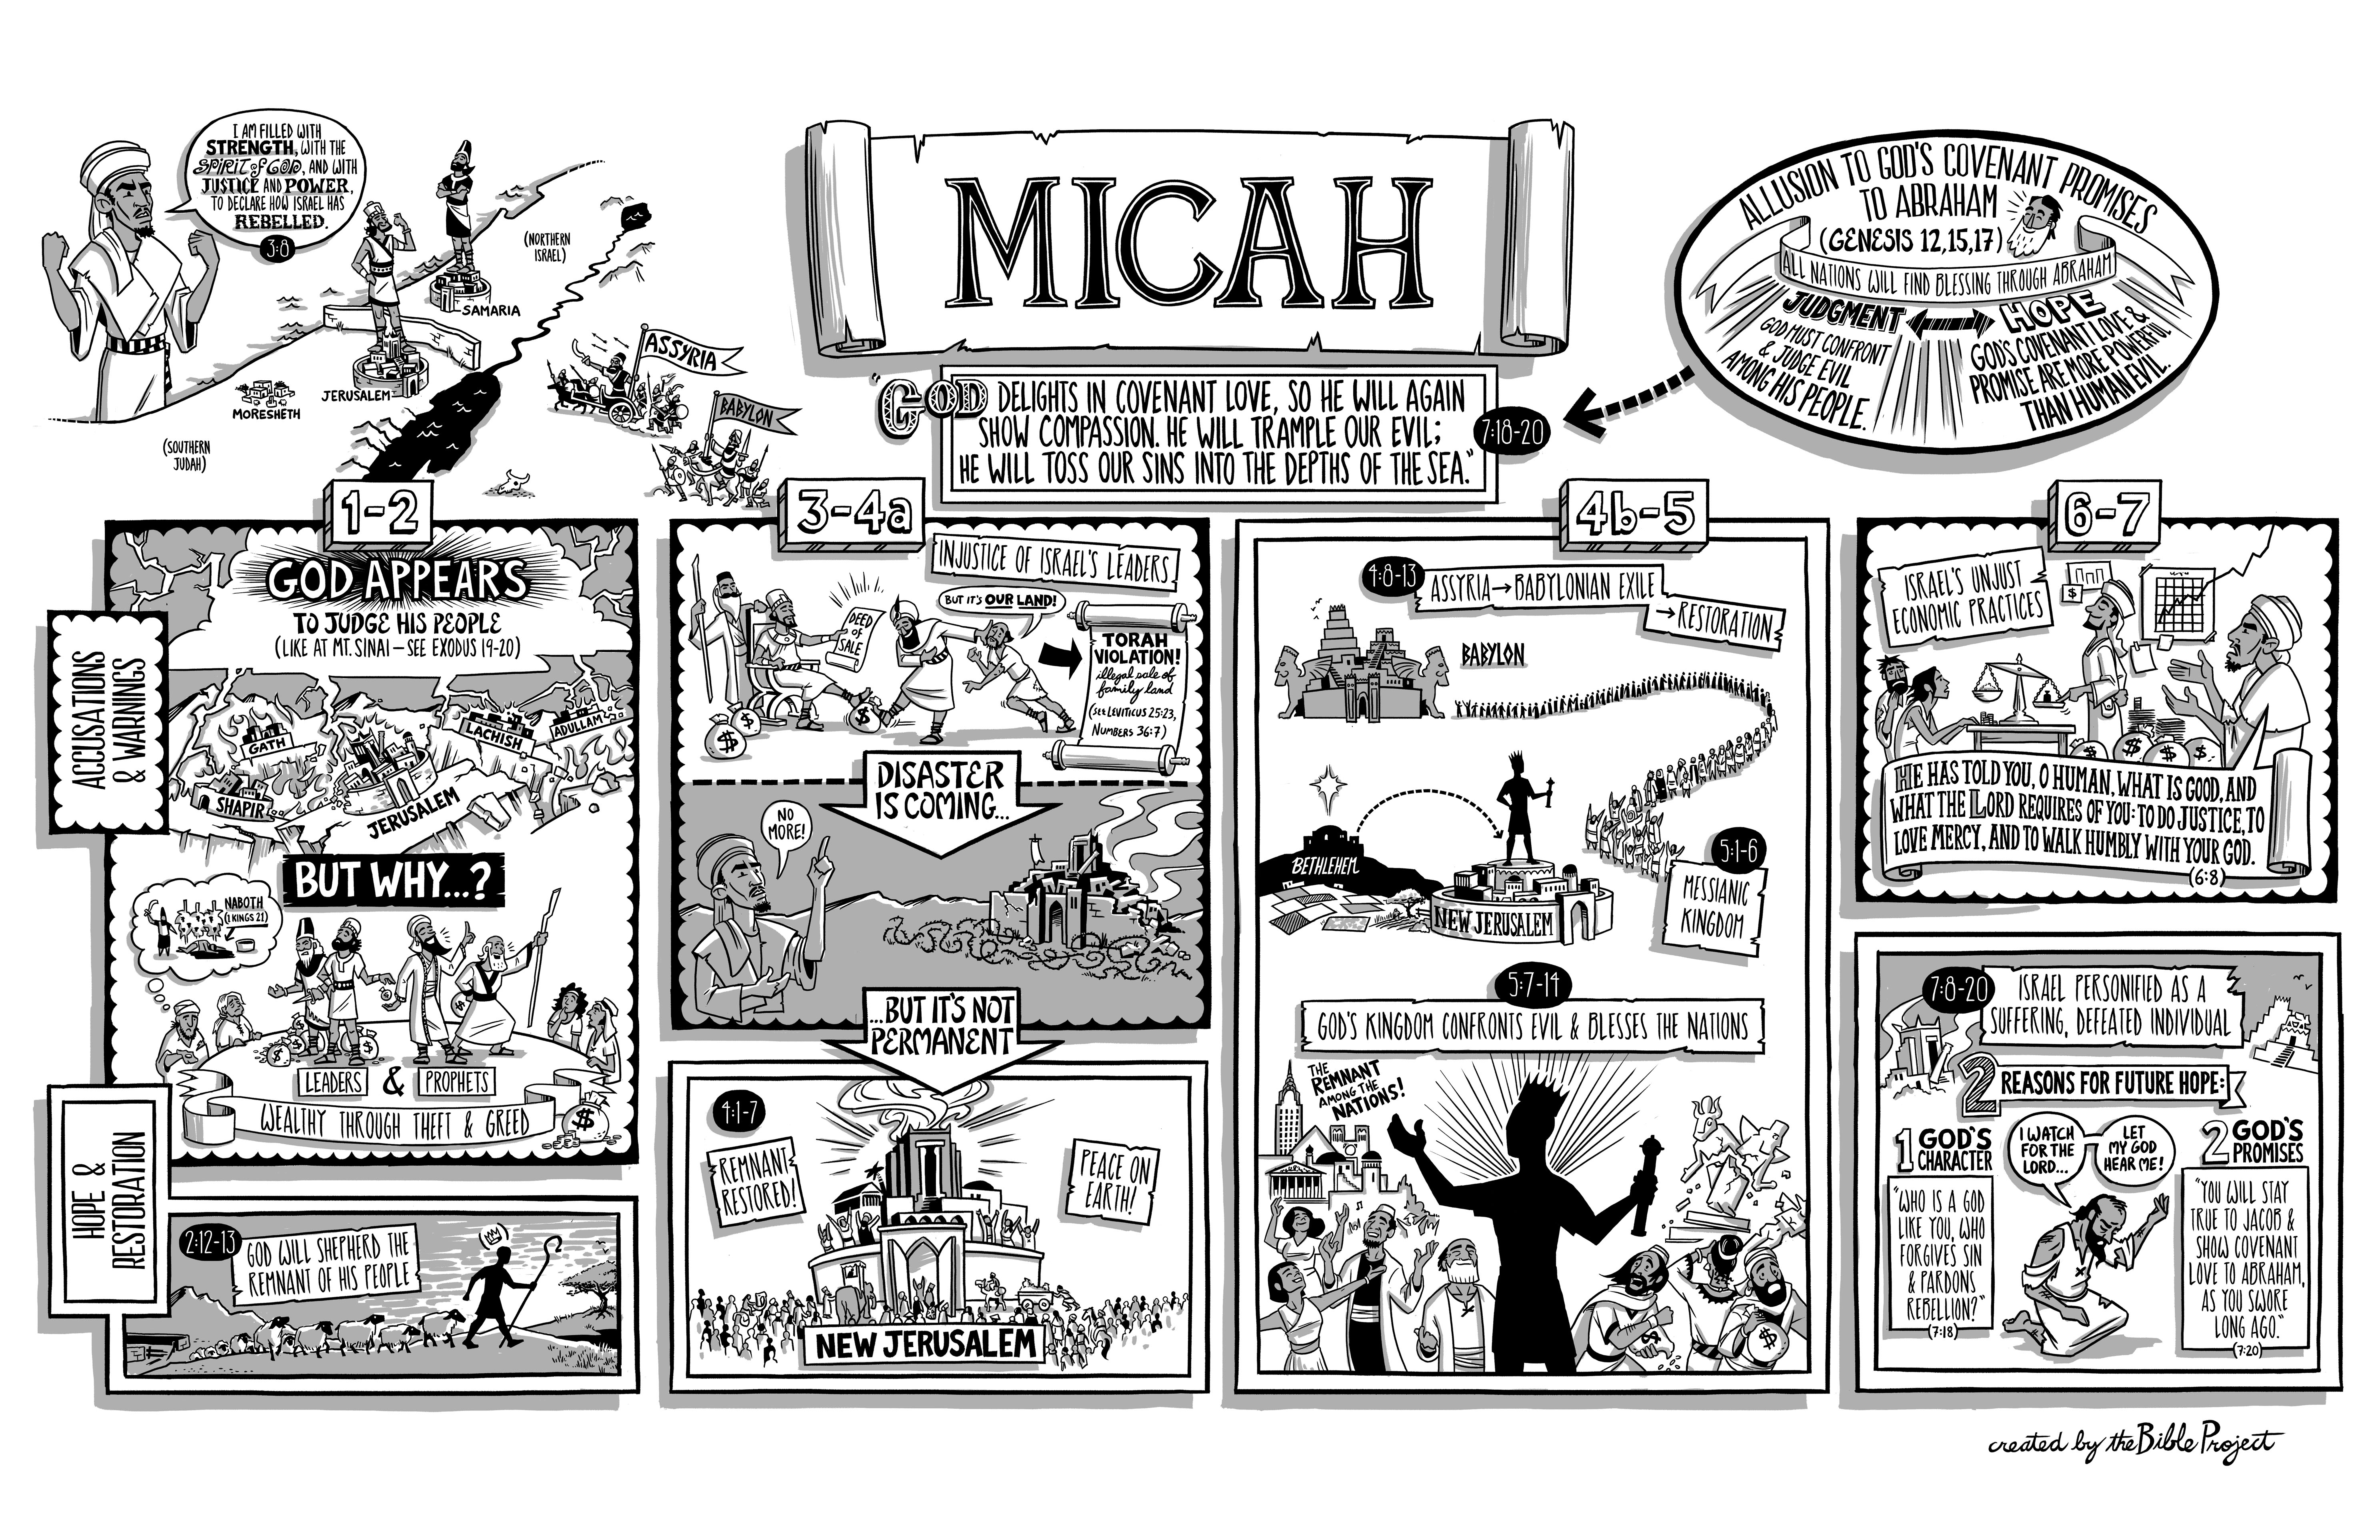 I AM FILLED WITH
STRENGTH, WITH THE
SPIRIT of GOD, AND WITH
JUSTICE AND POWER,
TO DECLARE HOW ISRAEL HAS
REBELLED.
3:8
(NORTHERN
ISRAEL)
SAMARIA
JERUSALEM
MORESHETH
(SOUTHERN
JUDAH)
ASSYRIA
BABYLON
MICAH
"GOD DELIGHTS IN COVENANT LOVE, SO HE WILL AGAIN
SHOW COMPASSION. HE WILL TRAMPLE OUR EVIL;
HE WILL TOSS OUR SINS INTO THE DEPTHS OF THE SEA."
7:18-20
ALLUSION TO GOD'S COVENANT PROMISES
TO ABRAHAM
(GENESIS 12,15,17)
ALL NATIONS WILL FIND BLESSING THROUGH ABRAHAM
JUDGMENT
GOD MUST CONFRONT
& JUDGE EVIL
AMONG HIS PEOPLE.
HOPE
GOD'S COVENANT LOVE &
PROMISE ARE MORE POWERFUL
THAN HUMAN EVIL.
ACCUSATIONS
& WARNINGS
HOPE &
RESTORATION
1-2
GOD APPEARS
TO JUDGE HIS PEOPLE
(LIKE AT MT. SINAI – SEE EXODUS 19-20)
GATH
SHAPIR
JERUSALEM
LACHISH
ADULLAM
BUT WHY...?
NABOTH
(1 KINGS 21)
$
LEADERS & PROPHETS
WEALTHY THROUGH THEFT & GREED
$
2:12-13
GOD WILL SHEPHERD THE
REMNANT OF HIS PEOPLE
3-4a
INJUSTICE OF ISRAEL'S LEADERS
DEED
of
SALE
BUT IT'S OUR LAND!
$
$
TORAH
VIOLATION!
illegal sale of
family land
(SEE LEVITICUS 25:23,
NUMBERS 36:7)
DISASTER
IS COMING...
NO
MORE!
...BUT IT'S NOT
PERMANENT
4:1-7
REMNANT
RESTORED!
PEACE ON
EARTH!
NEW JERUSALEM
4b-5
4:8-13
ASSYRIA→BABYLONIAN EXILE
→RESTORATION
BABYLON
BETHLEHEM
NEW JERUSALEM
5:1-6
MESSIANIC
KINGDOM
5:7-14
GOD'S KINGDOM CONFRONTS EVIL & BLESSES THE NATIONS
THE
REMNANT
AMONG THE
NATIONS!
$
$
6-7
ISRAEL'S UNJUST
ECONOMIC PRACTICES
$
$ $ $
HE HAS TOLD YOU, O HUMAN, WHAT IS GOOD, AND
WHAT THE LORD REQUIRES OF YOU: TO DO JUSTICE, TO
LOVE MERCY, AND TO WALK HUMBLY WITH YOUR GOD.
(6:8)
7:8-20
ISRAEL PERSONIFIED AS A
SUFFERING, DEFEATED INDIVIDUAL
2 REASONS FOR FUTURE HOPE:
1 GOD'S
CHARACTER
"WHO IS A GOD
LIKE YOU, WHO
FORGIVES SIN
& PARDONS
REBELLION?"
(7:18)
I WATCH
FOR THE
LORD...
LET
MY GOD
HEAR ME!
2 GOD'S
PROMISES
"YOU WILL STAY
TRUE TO JACOB &
SHOW COVENANT
LOVE TO ABRAHAM,
AS YOU SWORE
LONG AGO."
(7:20)
created by the Bible Project